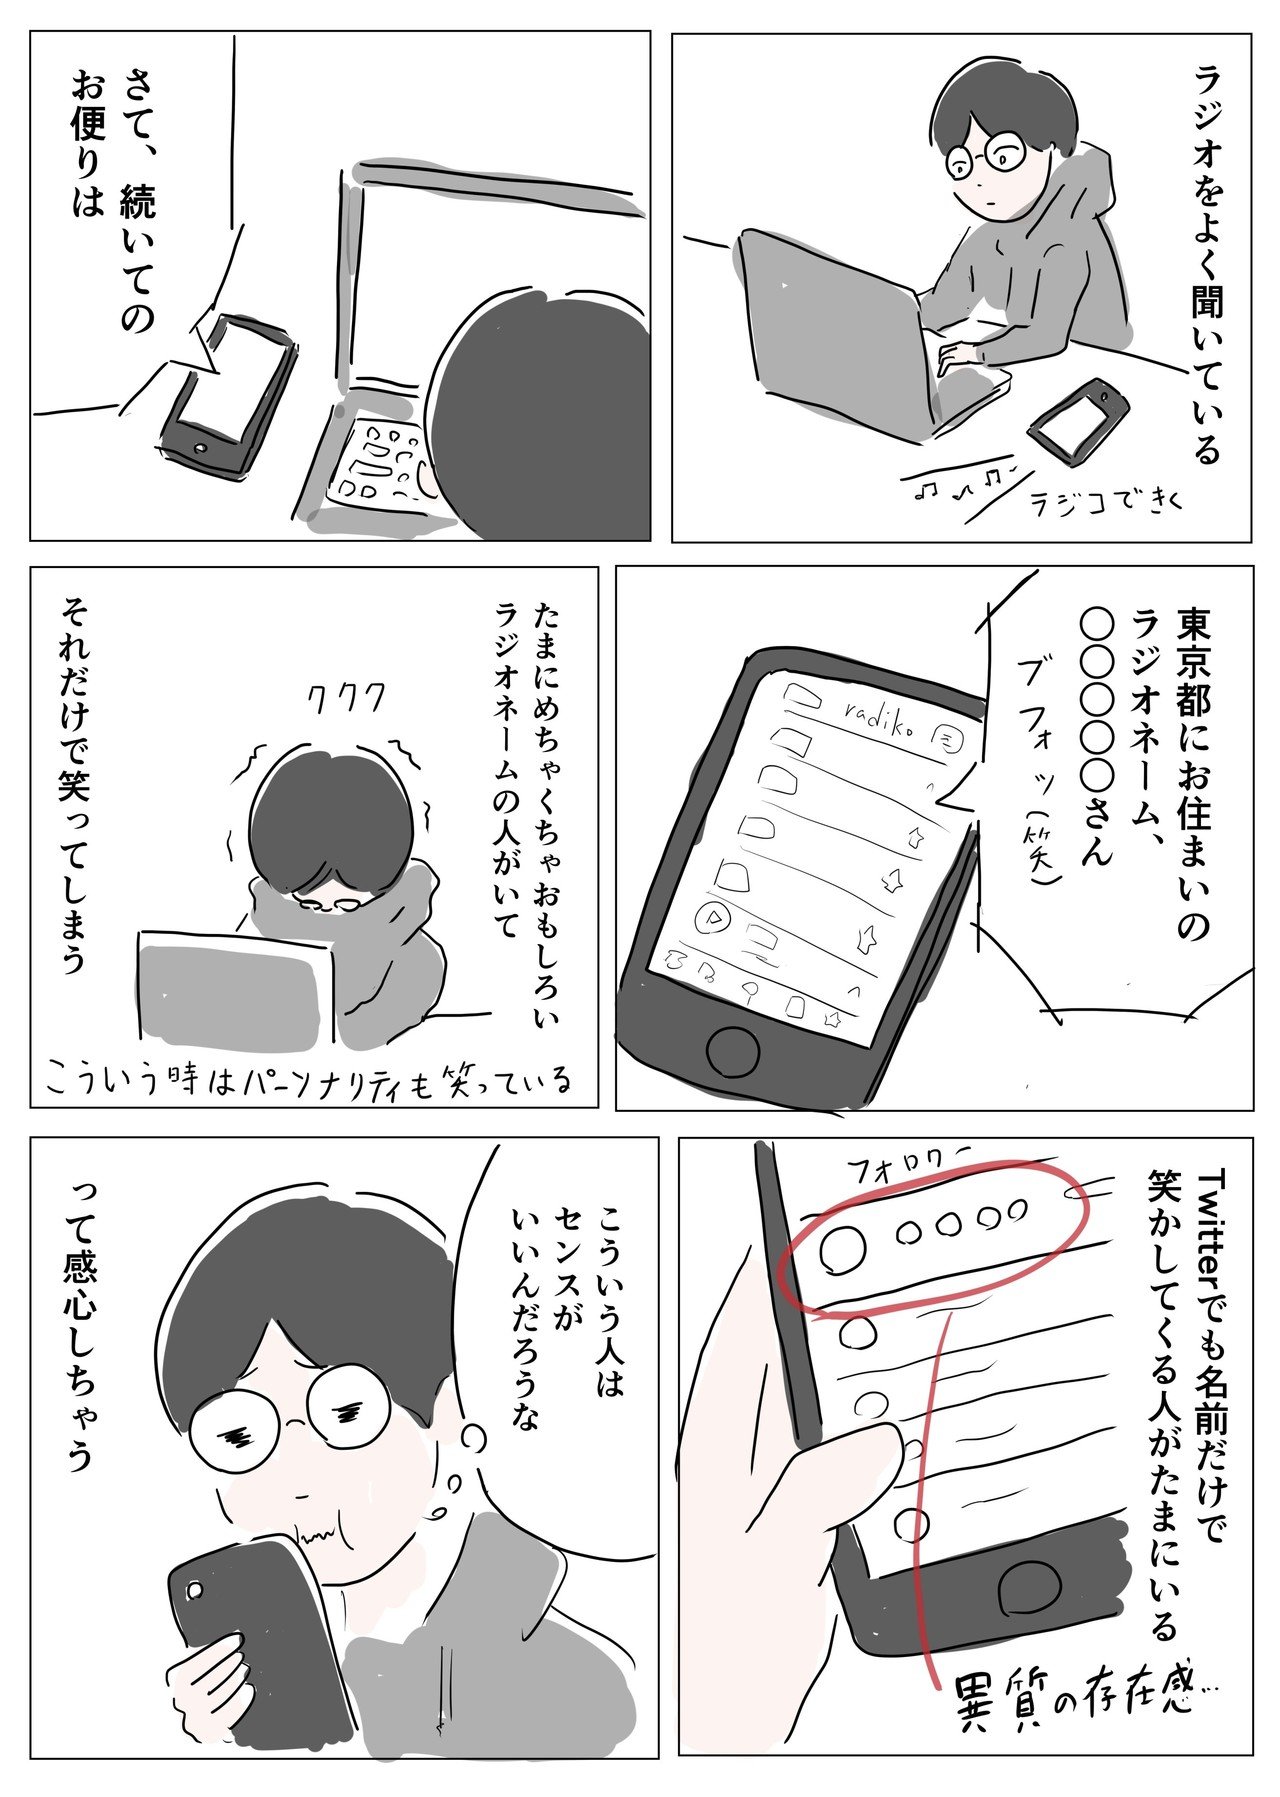 ラジオをよく聞いている
ラジコできく
さて、続いての
お便りは
東京都にお住まいの
ラジオネーム、
〇〇〇〇〇さん
ブフォッ(笑)
radiko
たまにめちゃくちゃおもしろい
ラジオネームの人がいて
ククク
それだけで笑ってしまう
こういう時はパーソナリティも笑っている
Twitterでも名前だけで
笑かしてくる人がたまにいる
フォロワー
〇〇〇〇
異質の存在感…
こういう人は
センスが
いいんだろうな
って感心しちゃう